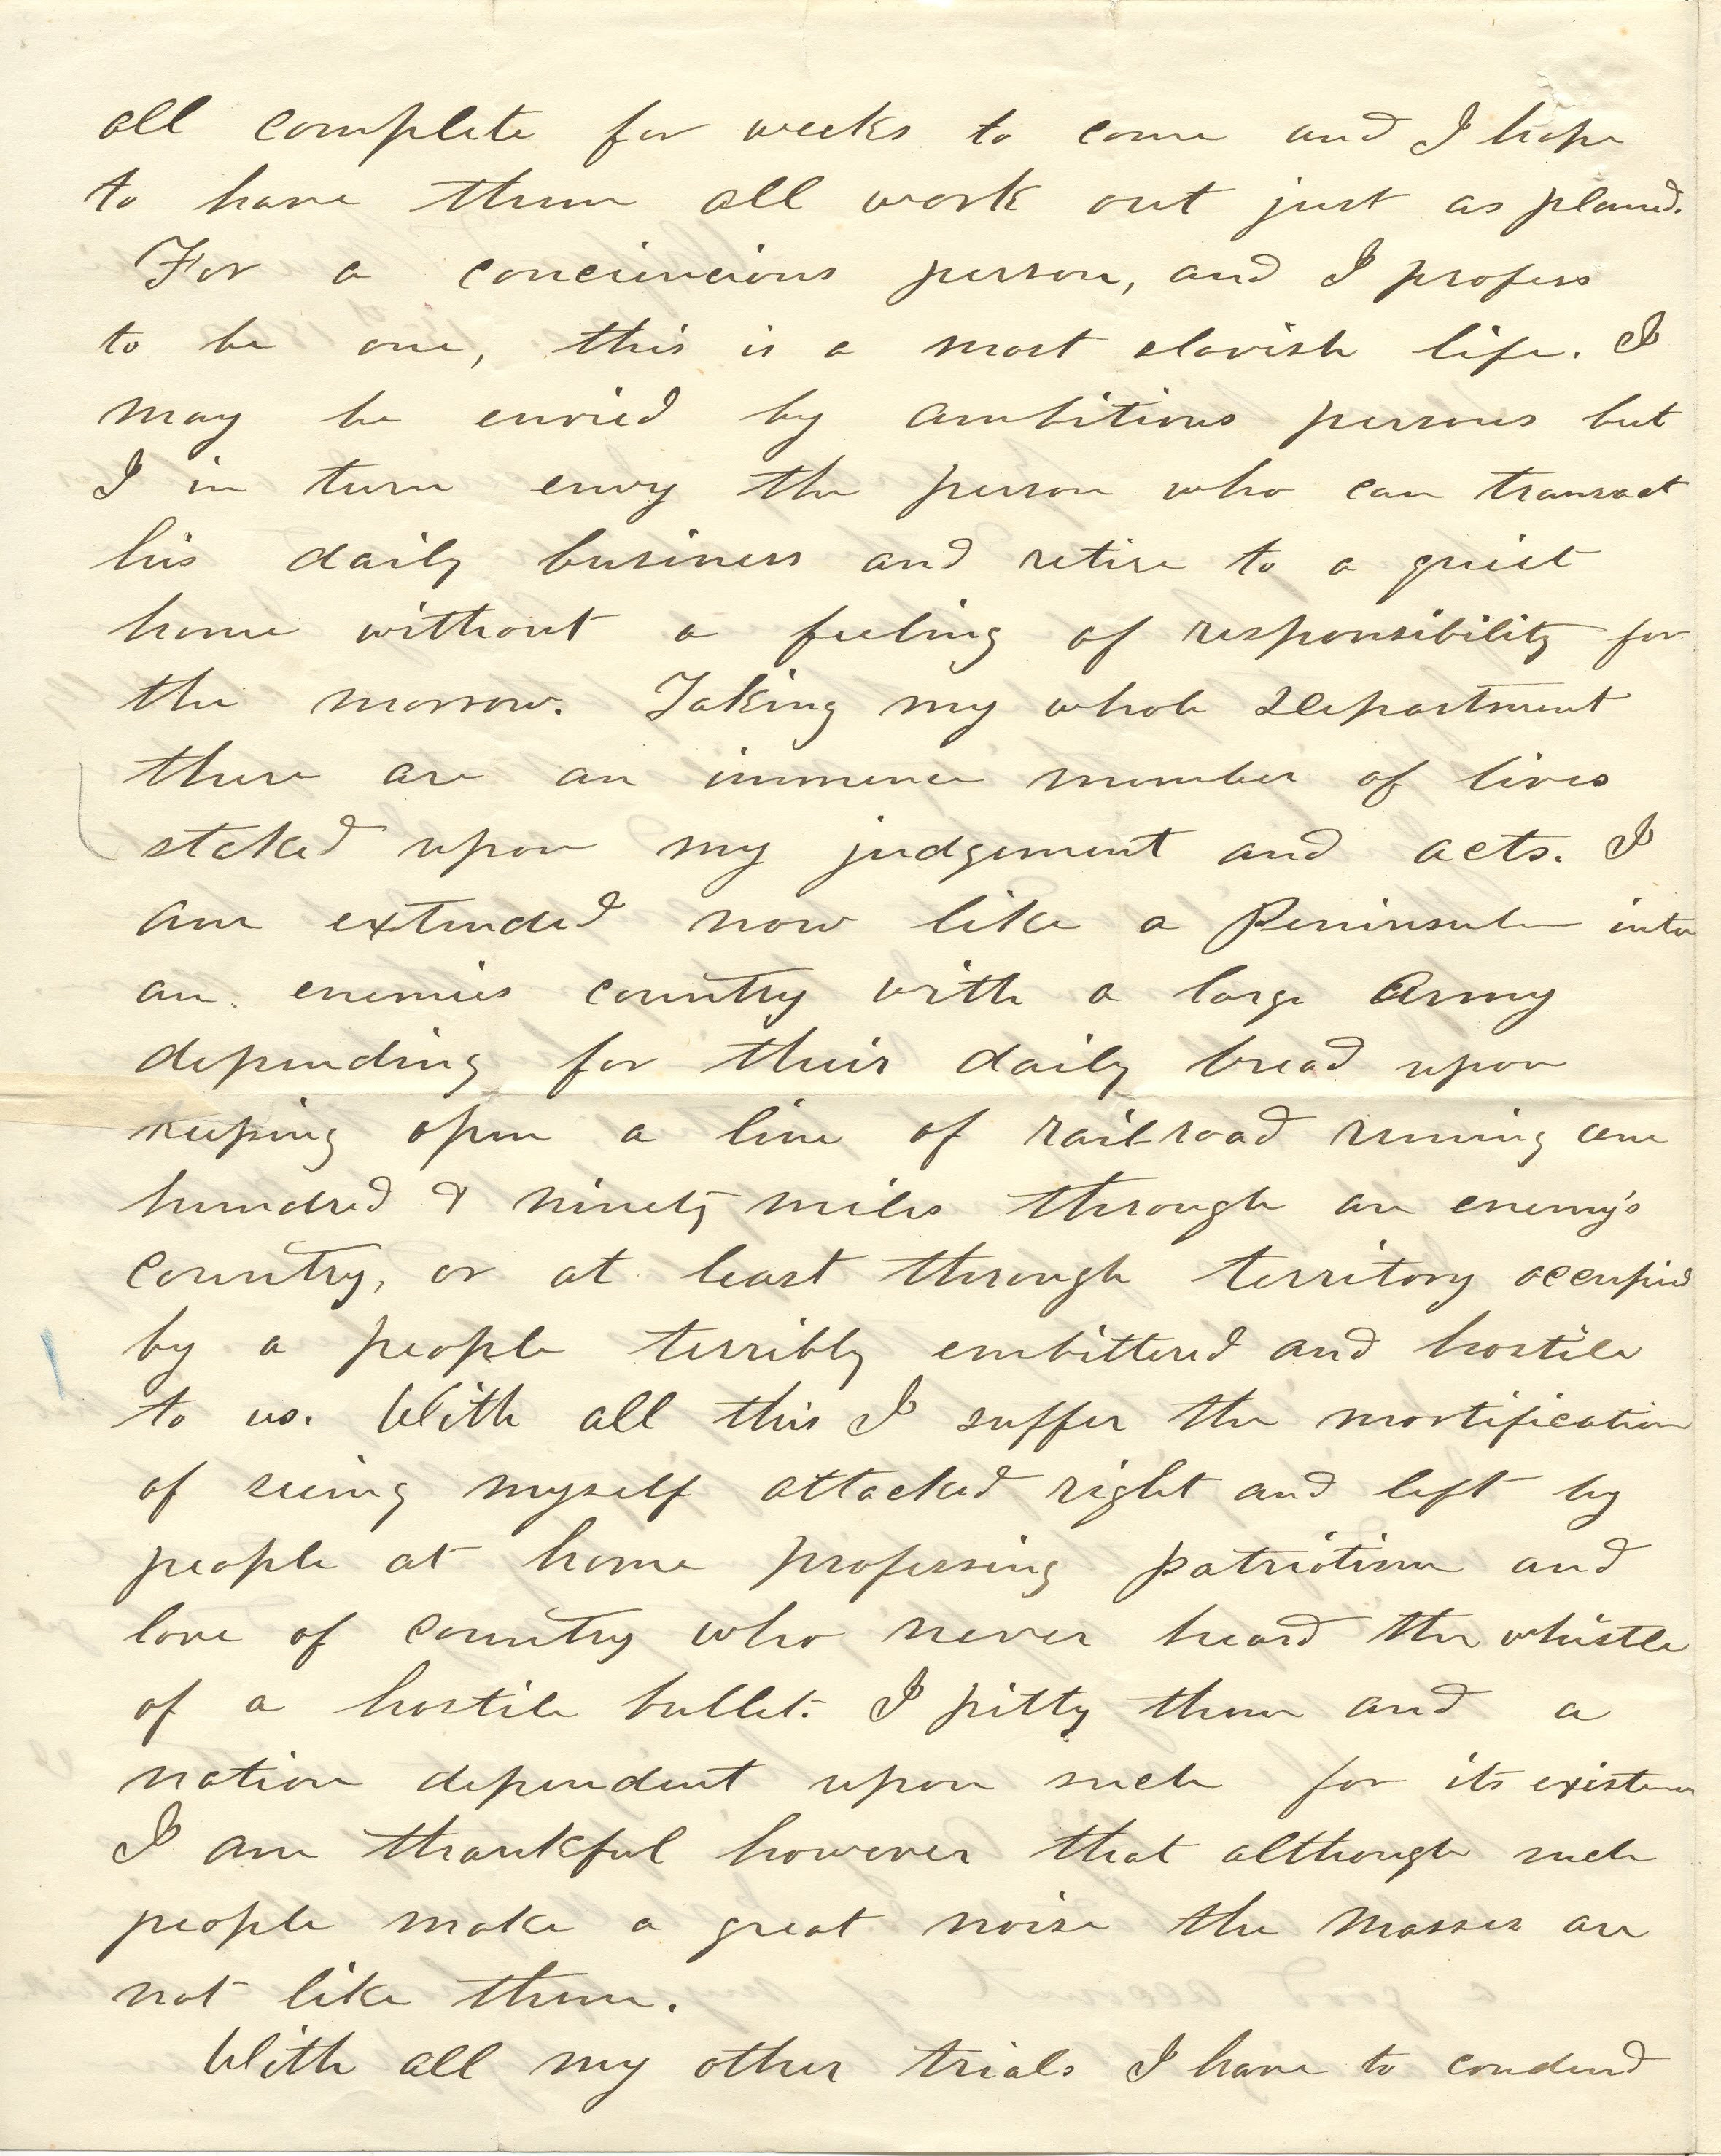 all complete for weeks to come and I hope
to have them all work out just as planed.
For a conciencious person, and I profess
to be one, this is a most slavish life. I
may be envied by ambitious persons but
I in turn envy the person who can transact
his daily business and retire to a quiet
home without a feeling of responsibility for
the morrow. Taking my whole Department
there are an immence number of lives
staked upon my judgement and acts. I
am extended now like a Peninsula into
an enemies country with a large Army
depending for their daily bread upon
keeping open a line of railroad running one
hundred & ninety miles through an enemy's
country, or at least through territory occupied
by a people terribly embittered and hostile
to us. With all this I suffer the mortification
of seeing myself attacked right and left by
people at home professing patriotism and
love of country who never heard the whistle
of a hostile bullet. I pitty them and a
nation dependent upon such for its existence
I am thankful however that although such
people make a great noise the masses are
not like them.
With all my other trials I have to contend